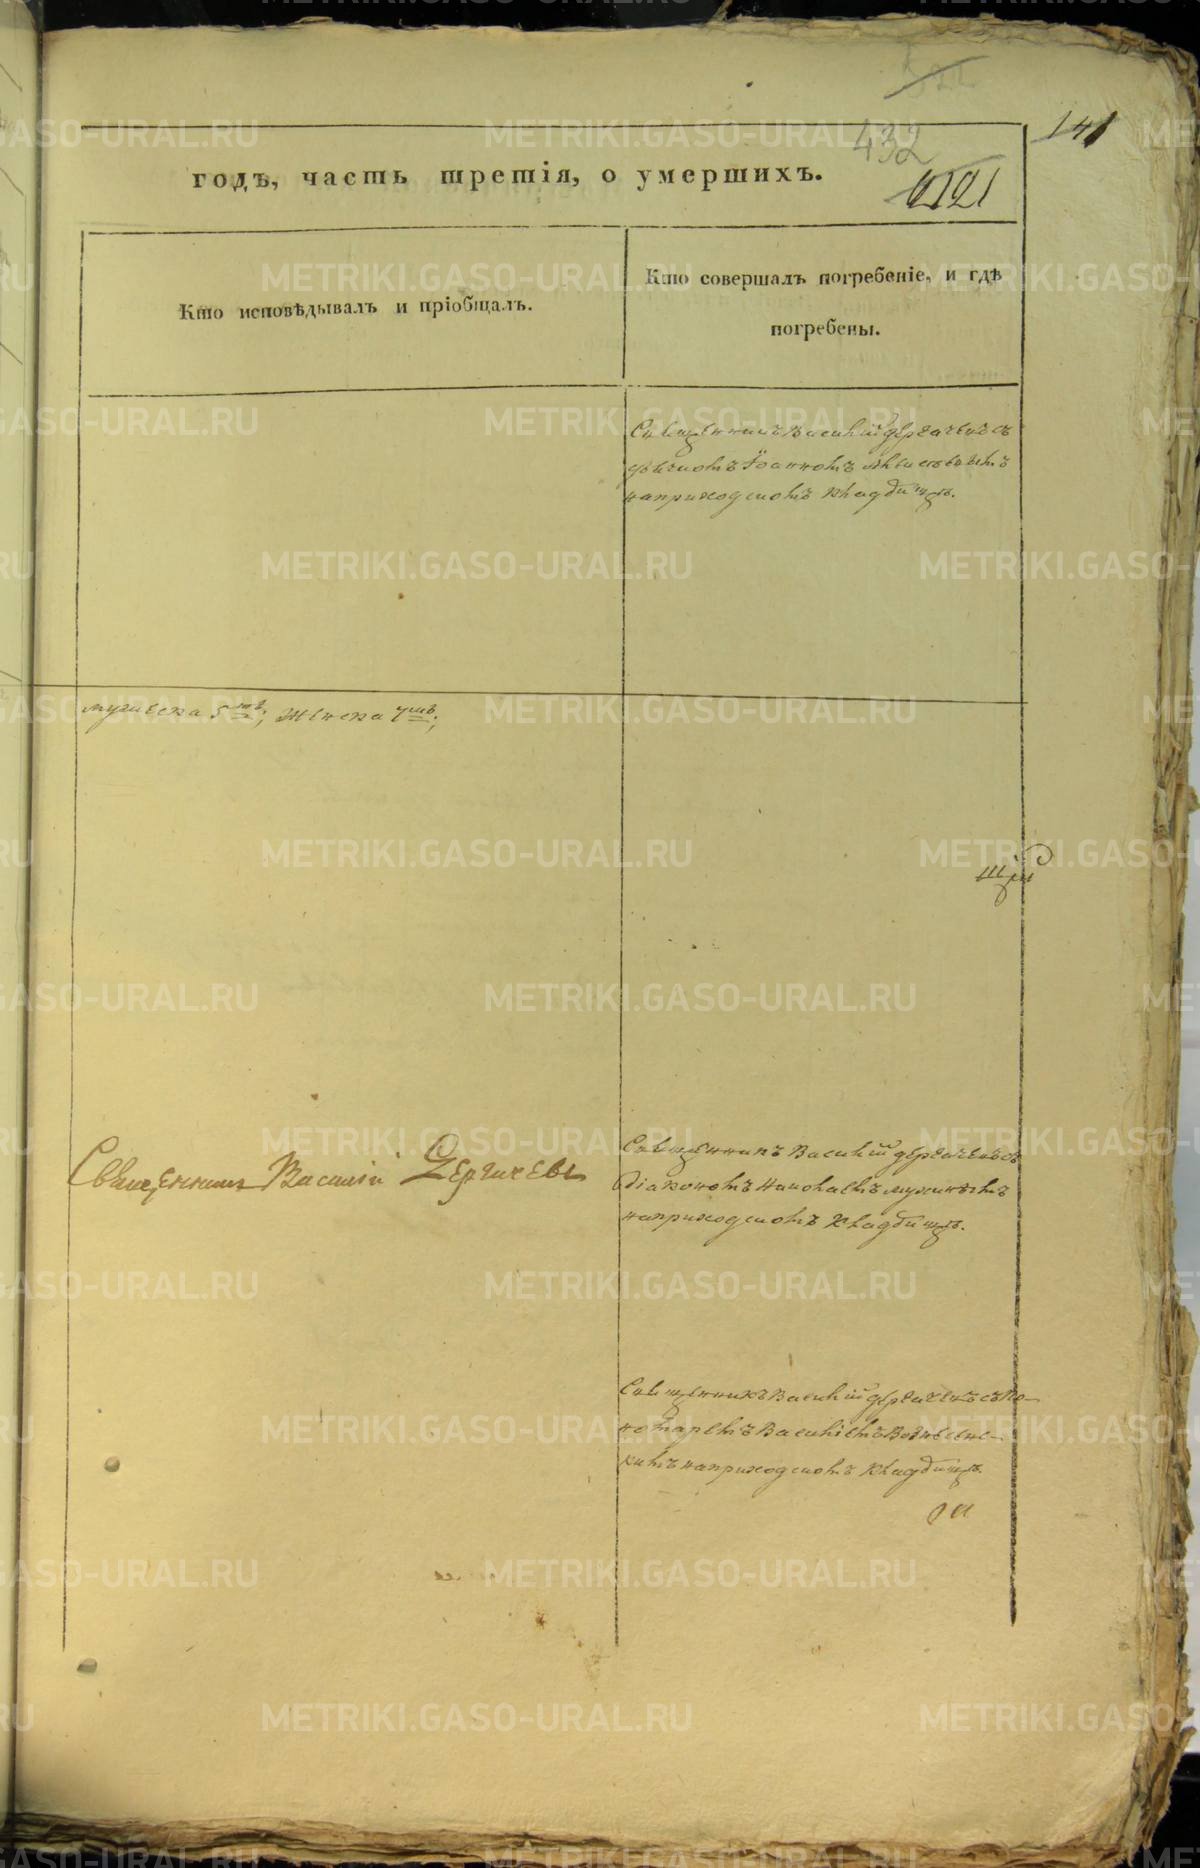 141
432
2121
годъ, часть третія, о умершихъ.
Кто исповѣдывалъ и пріобщалъ.
Кто совершалъ погребеніе, и гдѣ
погребены.
Священникъ Василій Дергачевъ съ
Іоанномъ
на приходскомъ кладбищѣ.
мужеска 5ть, женска 7мь,
щій
Священникъ Василій Дергачевъ
Священникъ Василій Дергачевъ съ
діакономъ Николаемъ
на приходскомъ кладбищѣ.
Священникъ Василій Дергачевъ съ по-
номаремъ Василіемъ Вознесенс-
кимъ на приходскомъ кладбищѣ.
METRIKI.GASO-URAL.RU